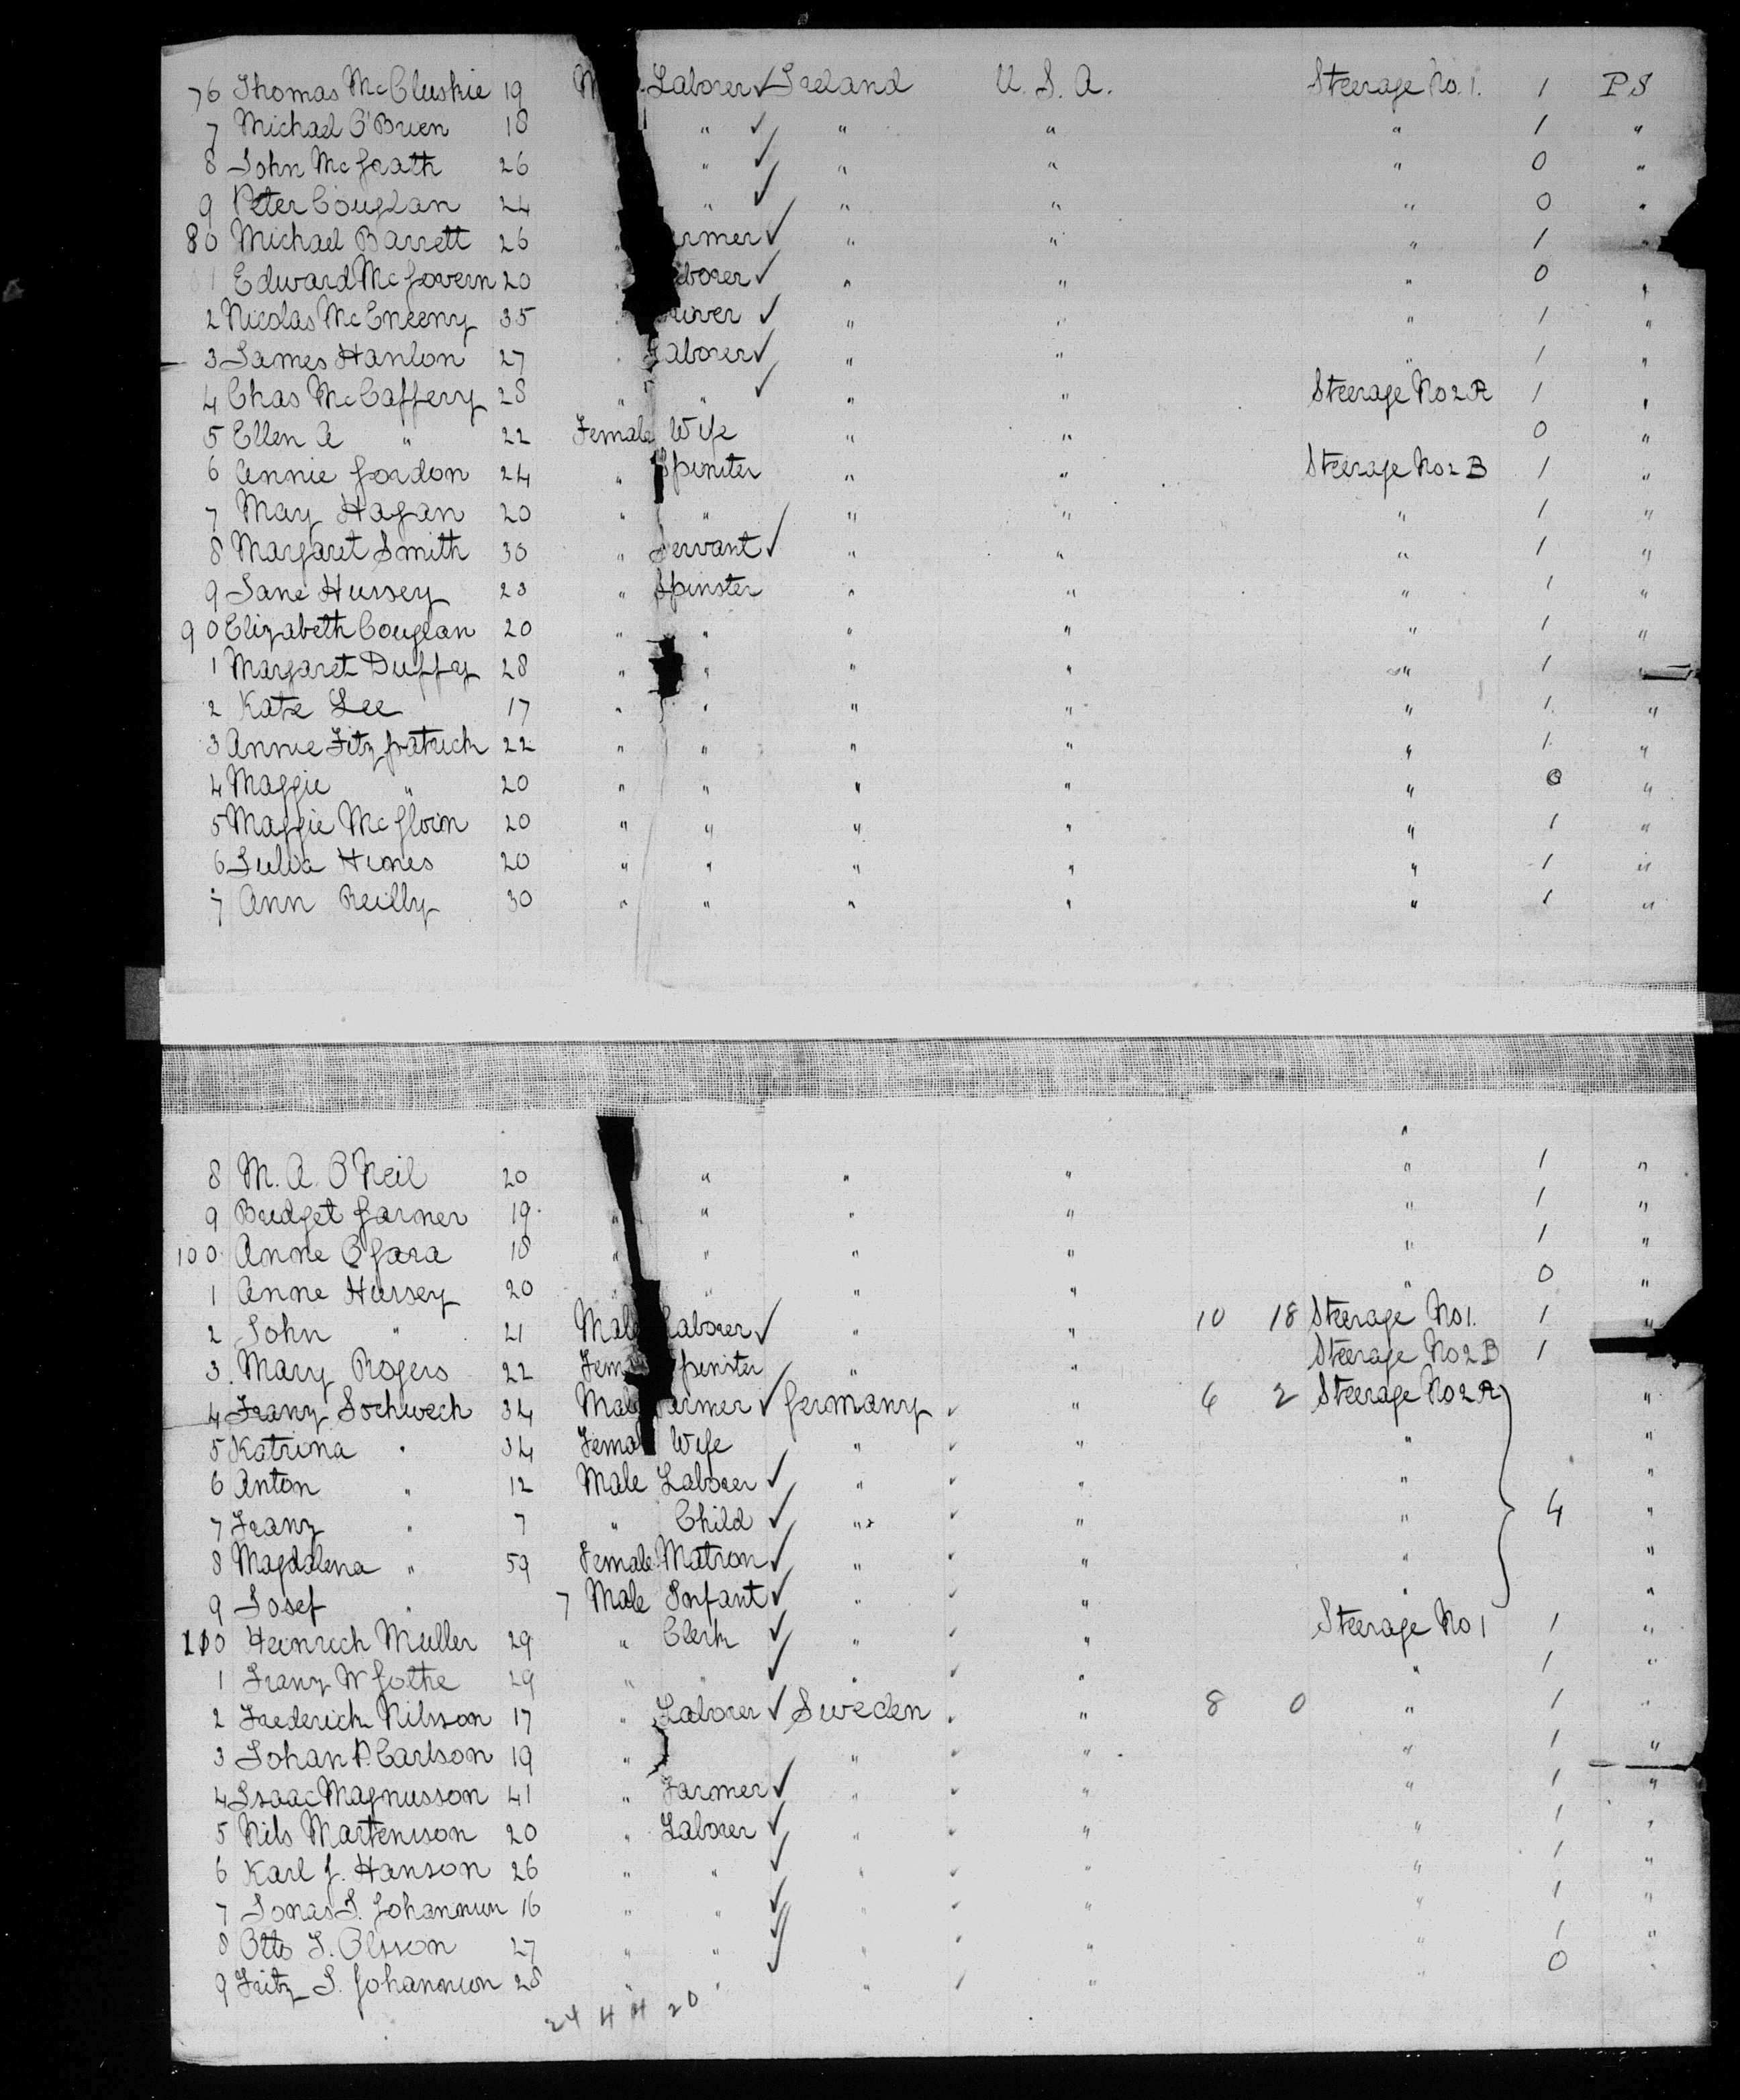 76 Thomas McCluskie 19 M Laborer ✓ Ireland U. S. A. Steerage No. 1. 1 PS
7 Michael O'Brien 18 " ✓ " " " 1 "
8 John McGrath 26 " ✓ " " " 0 "
9 Peter Couglan 24 " ✓ " " " 0 "
80 Michael Barrett 26 " armer ✓ " " " 1 "
81 Edward McGovern 20 " aborer ✓ " " " 0 "
2 Nicolas McEneeny 35 " ✓ " " " 1 "
3 James Hanlon 27 " Laborer ✓ " " " 1 "
4 Chas McCaffery 28 " " ✓ " " Steerage No 2 A 1 "
5 Ellen A " 22 Female Wife " " 0 "
6 Annie Gordon 24 " Spinster " " Steerage No 2 B 1 "
7 May Hagan 20 " " " " " 1 "
8 Margaret Smith 30 " Servant ✓ " " " 1 "
9 Jane Hussey 23 " Spinster " " " 1 "
90 Elizabeth Couglan 20 " " " " " 1 "
1 Margaret Duffy 28 " " " " " 1 "
2 Kate Lee 17 " " " " " 1 "
3 Annie Fitzpatrick 22 " " " " " 1 "
4 Maggie " 20 " " " " " 0 "
5 Maggie McGloin 20 " " " " " 1 "
6 Julia Hines 20 " " " " " 1 "
7 Ann Reilly 30 " " " " " 1 "
"
8 M. A. O'Neil 20 " " " " 1 "
9 Bridget Garner 19 " " " " " 1 "
100 Anne O'Gara 18 " " " " " 1 "
1 Anne Hussey 20 " " " " " 0 "
2 John " 21 Male Laborer ✓ " " 10 18 Steerage No 1. 1 "
3 Mary Rogers 22 Fem pinster " " Steerage No 2 B 1
4 Franz Sochwech 34 Male armer ✓ Germany ✓ " 6 2 Steerage No 2 A "
5 Katrina " 34 Femal Wife " ✓ " " "
6 Anton " 12 Male Laborer ✓ " ✓ " " "
7 Franz " 7 " Child ✓ " ✓ " " 4 "
8 Magdalena " 59 Female Matron ✓ " ✓ " " "
9 Josef " 7 Male Infant ✓ " ✓ " " "
110 Heinrich Muller 29 " Clerk ✓ " ✓ " Steerage No 1 1 "
1 Franz W Gothe 29 " " ✓ " ✓ " " 1 "
2 Frederick Nilsson 17 " Laborer ✓ Sweden ✓ " 8 0 " 1 "
3 Johan P. Carlson 19 " " ✓ " " 1 "
4 Isaac Magnusson 41 " Farmer ✓ " ✓ " " 1 "
5 Nils Martenson 20 " Laborer ✓ " ✓ " " 1 "
6 Karl J. Hanson 26 " " ✓ " ✓ " " 1 "
7 Jonas J. Johannson 16 " " ✓ " ✓ " " 1 "
8 Otto J. Olsson 27 " " ✓ " ✓ " " 1 "
9 Fritz J. Johannson 28 " " ✓ " ✓ " " 0 "
24 4 4 20